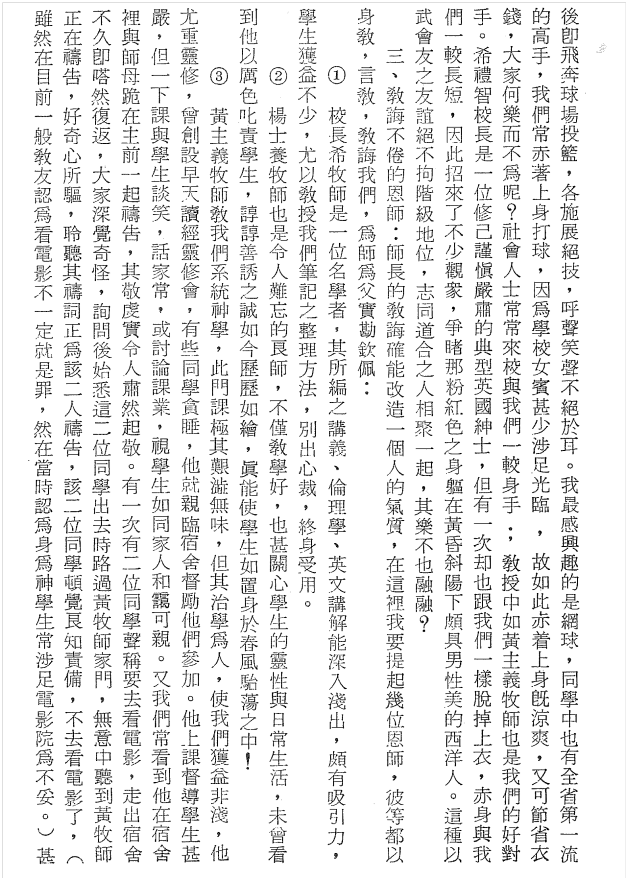 後卽飛奔球場投籃，各施展絕技，呼聲笑聲不絕於耳。我最感興趣的是網球，同學中也有全省第一流
的高手，我們常赤著上身打球，因爲學校女賓甚少涉足光臨，故如此赤着上身旣涼爽，又可節省衣
錢，大家何樂而不爲呢？社會人士常常來校與我們一較身手；，敎授中如黃主義牧師也是我們的好對
手。希禮智校長是一位修己謹愼嚴肅的典型英國紳士，但有一次却也跟我們一樣脫掉上衣，赤身與我
們一較長短，因此招來了不少觀衆，爭睹那粉紅色之身軀在黃昏斜陽下頗具男性美的西洋人。這種以
武會友之友誼絕不拘階級地位，志同道合之人相聚一起，其樂不也融融？
三、敎誨不倦的恩師：師長的敎誨確能改造一個人的氣質，在這裡我要提起幾位恩師，彼等都以
身敎，言敎，敎誨我們，爲師爲父實勘欽佩：
① 校長希牧師是一位名學者，其所編之講義、倫理學、英文講解能深入淺出，頗有吸引力，
學生獲益不少，尤以敎授我們筆記之整理方法，別出心裁，終身受用。
② 楊士養牧師也是令人難忘的良師，不僅敎學好，也甚關心學生的靈性與日常生活，未曾看
到他以厲色叱責學生，諄諄善誘之誠如今歷歷如繪，眞能使學生如置身於春風駘蕩之中！
③ 黃主義牧師敎我們系統神學，此門課極其艱澁無味，但其治學爲人，使我們獲益非淺，他
尤重靈修，曾創設早天讀經靈修會，有些同學貪睡，他就親臨宿舍督勵他們參加。他上課督導學生甚
嚴，但一下課與學生談笑，話家常，或討論課業，視學生如同家人和靄可親。又我們常看到他在宿舍
裡與師母跪在主前一起禱告，其敬虔實令人肅然起敬。有一次有二位同學聲稱要去看電影，走出宿舍
不久卽嗒然復返，大家深覺奇怪，詢問後始悉這二位同學出去時路過黃牧師家門，無意中聽到黃牧師
正在禱告，好奇心所驅，聆聽其禱詞正爲該二人禱告，該二位同學頓覺良知責備，不去看電影了，（
雖然在目前一般敎友認爲看電影不一定就是罪，然在當時認爲身爲神學生常涉足電影院爲不妥。）甚